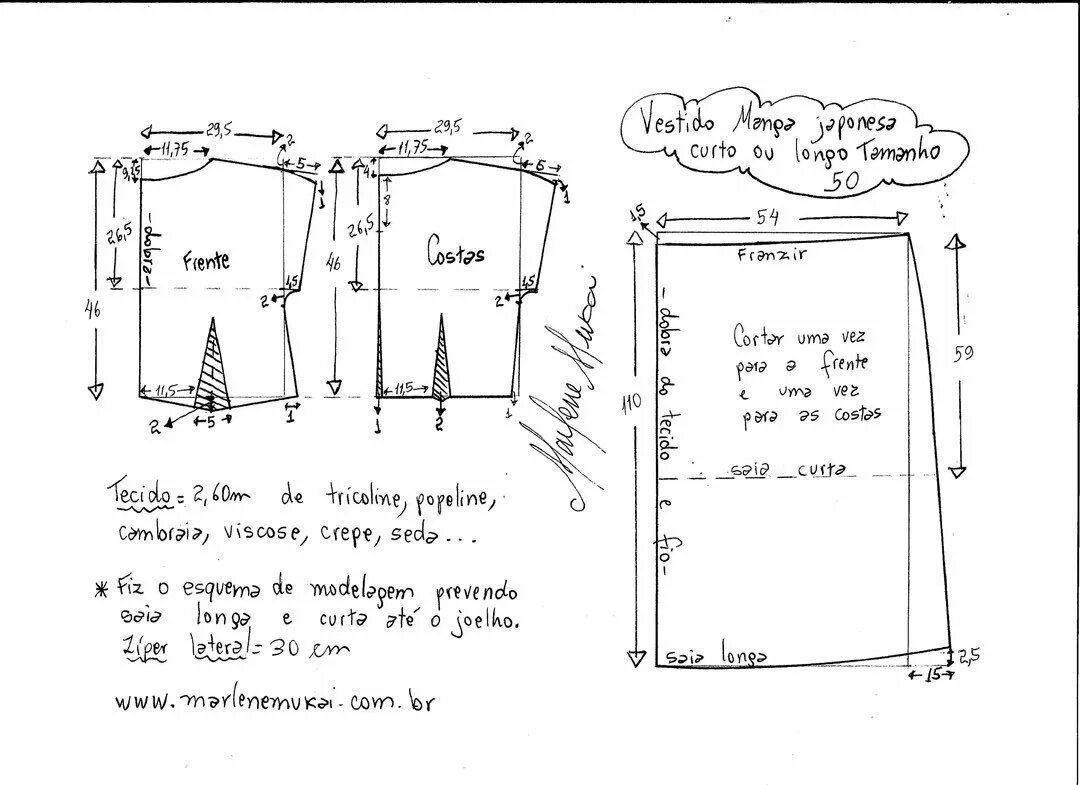 Vestido Manga japonesa
curto ou longo Tamanho
50
29,5
11,75
2
5
9,25
1
26,5
-dobra-
Frente
46
1,5
2
11,5
2
5
1
29,5
11,75
2
6
4
1
8
26,5
Costas
46
1,5
2
11,5
1
2
1
Marlene Mukai
1,5
54
Franzir
110
-dobra do tecido e fio-
Cortar uma vez
para a frente
e uma vez
para as costas
59
saia curta
saia longa
2,5
15
Tecido = 2,60m de tricoline, popeline,
cambraia, viscose, crepe, seda...
* Fiz o esquema de modelagem prevendo
saia longa e curta até o joelho.
Zíper lateral = 30 cm
www.marlenemukai.com.br